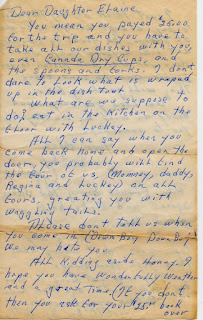 Dear Daughter Elaine
You mean you payed $35.00
for the trip and you have to
take all our dishes with you,
even Canada Dry Cups, and
the spoons and forks. I don't
dare to look what is wraped
up in the dish towl.
What are we suppose to
do, eat in the kitchen on the
floor with Luckey.
All I can say when you
come back home and open the
door, you probably will find
the four of us, (Mommey, daddy,
Regina and Luckey) on all
fours, greating you with
waggling tails.
Please don't tell us when
you come in (Down Boy, Down Boy)
We may bate you.
All kidding aside Honey. I
hope you have wonderfully weather
and a great time. (If you don't
then you ask for your $35 back
over